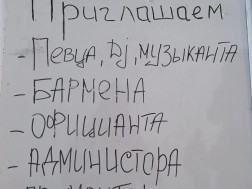 Приглашаем
- Певца, Dj, музыканта
- Бармена
- Официанта
- Админисtора